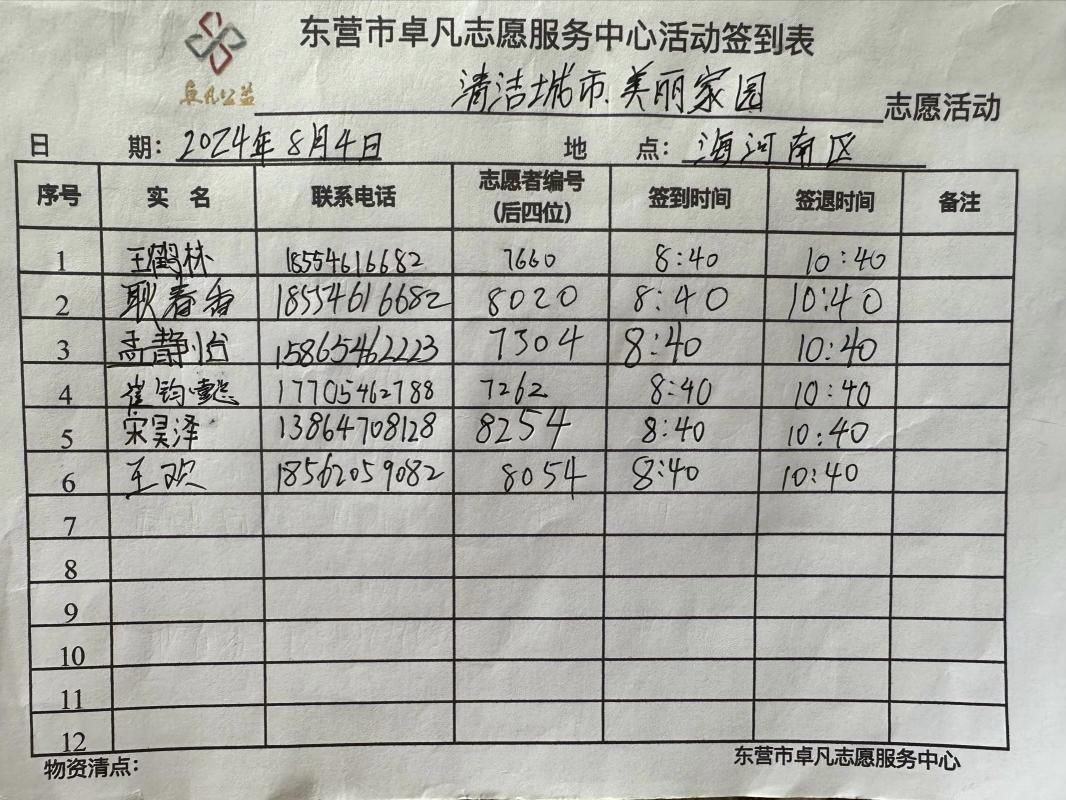 东营市卓凡志愿服务中心活动签到表
卓凡公益
清洁城市.美丽家园 志愿活动
日期: 2024年8月4日 地点: 海河南区
序号 实名 联系电话 志愿者编号(后四位) 签到时间 签退时间 备注
1 王鹤林 18554616682 7660 8:40 10:40
2 耿春香 18554616682 8020 8:40 10:40
3 孟静怡 15865462223 7304 8:40 10:40
4 崔钧 17705462788 7262 8:40 10:40
5 宋昊泽 13864708128 8254 8:40 10:40
6 王欢 18562059082 8054 8:40 10:40
7
8
9
10
11
12
物资清点: 东营市卓凡志愿服务中心